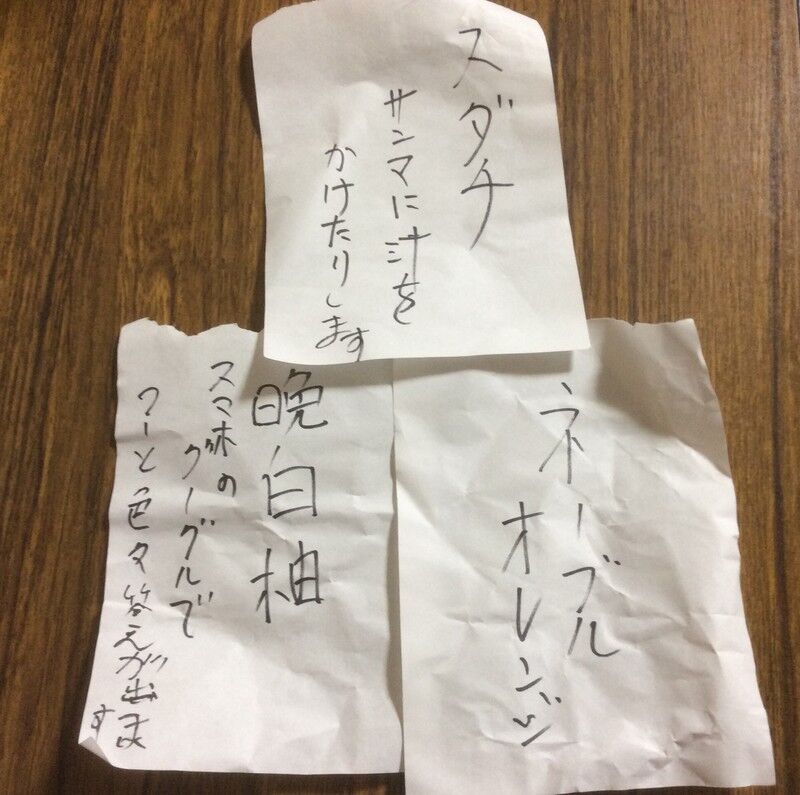 スダチ
サンマに汁を
かけたりします
ネーブル
オレンジ
晩白柚
スマホの
グーグルで
ワーと色々答えが出ます